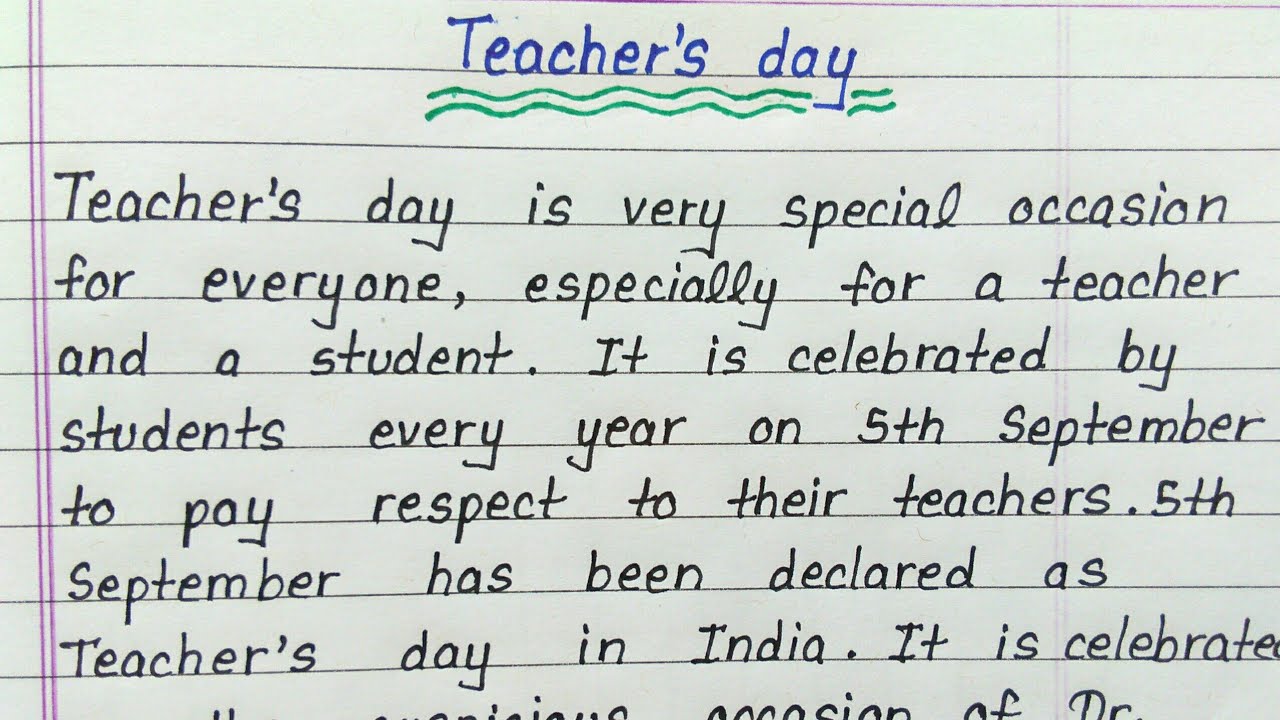 Teacher's day
Teacher's day is very special occasion
for everyone, especially for a teacher
and a student. It is celebrated by
students every year on 5th September
to pay respect to their teachers. 5th
September has been declared as
Teacher's day in India. It is celebrated
occasion of Dr.